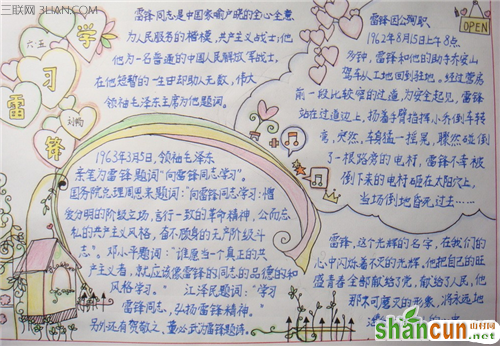 三联网 3LIAN.COM
学
习
雷
锋
雷锋同志是中国家喻户晓的全心全意
为人民服务的楷模,共产主义战士;他
作为一名普通的中国人民解放军战士,
在他短暂的一生中却助人无数,伟大
领袖毛泽东主席为他题词。
1963年3月5日,领袖毛泽东
亲笔为雷锋题词"向雷锋同志学习"。
国务院总理周恩来题词:"向雷锋同志学习:憎
爱分明的阶级立场,言行一致的革命精神,公而忘
私的共产主义风格,奋不顾身的无产阶级斗
志"。邓小平题词:"谁愿当一个真正的共
产主义者,就应该像雷锋同志的品德的和
风格学习。" 江泽民题词:"学习
雷锋同志,弘扬雷锋精神。"
另外还有贺敬之、董必武为雷锋题诗。
雷锋因公殉职
OPEN
1962年8月15日上午8点
多钟,雷锋和他的助手乔安山
驾车从工地回到驻地,经过营房
前一段比较窄的过道,为安全起见,雷锋
站在过道边上,扬着手臂指挥小乔倒车转
弯,突然,车身猛一摇晃,骤然碰倒
了一根路旁的电杆,雷锋不幸被
倒下来的电杆砸在太阳穴上,
当场倒地昏死过……
雷锋,这个光辉的名字,在我们的
心中闪烁着不灭的光辉。他把自己的旺
盛青春全部献给了党,献给了人民,他
那不可磨灭的形象,将永远地
shancun.net
山村网